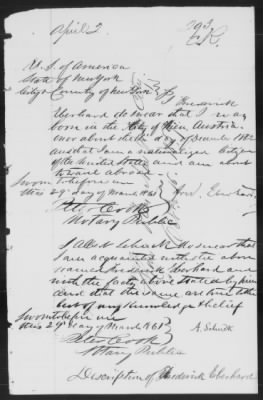 April 2
U. S. of America
State of New York
City & County of New York } ss
Frederick
Eberhard do swear that I was
born in the City of Wien, Austria
on or about the day of
and that I am a naturalized Citizen
of the United States and am about
to travel abroad.
Sworn to before me
this 29th day of March 1861
Peter Cook
Notary Public
I Albert Schuck do swear that
I am acquainted with the above
named Frederick Eberhard and
with the facts above stated by him
and that the same are true to the
best of my knowledge & belief
Sworn to before me
this 29th day of March 1861 } A. Schuck
Peter Cook
Notary Public
Description of Frederick Eberhard